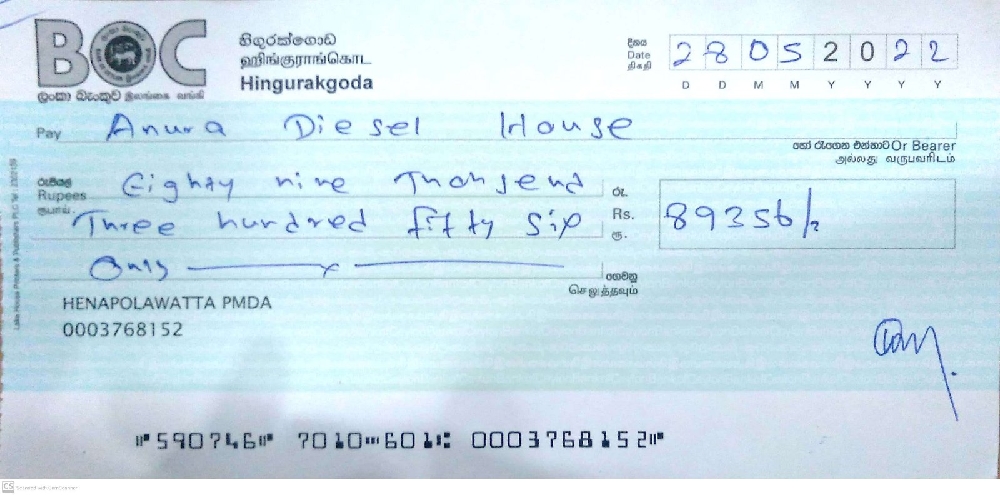 BOC
ලංකා බැංකුව இலங்கை வங்கி
හිඟුරක්ගොඩ
ஹிங்குராங்கொட
Hingurakgoda
දිනය
Date
திகதி
28052022
D D M M Y Y Y Y
Pay Anura Diesel House
හෝ රැගෙන එන්නාට Or Bearer
அல்லது வருபவரிடம்
රුපියල්
Rupees
ரூபாய்
Eighty nine Thousend
Three hundred fifty six
Only x
රු.
Rs.
ரூ.
89356/
ගෙවනු
செலுத்தவும்
HENAPOLAWATTA PMDA
0003768152
⑈590746⑈ 7010⑉601⑆ 0003768152⑈
CS Scanned with CamScanner